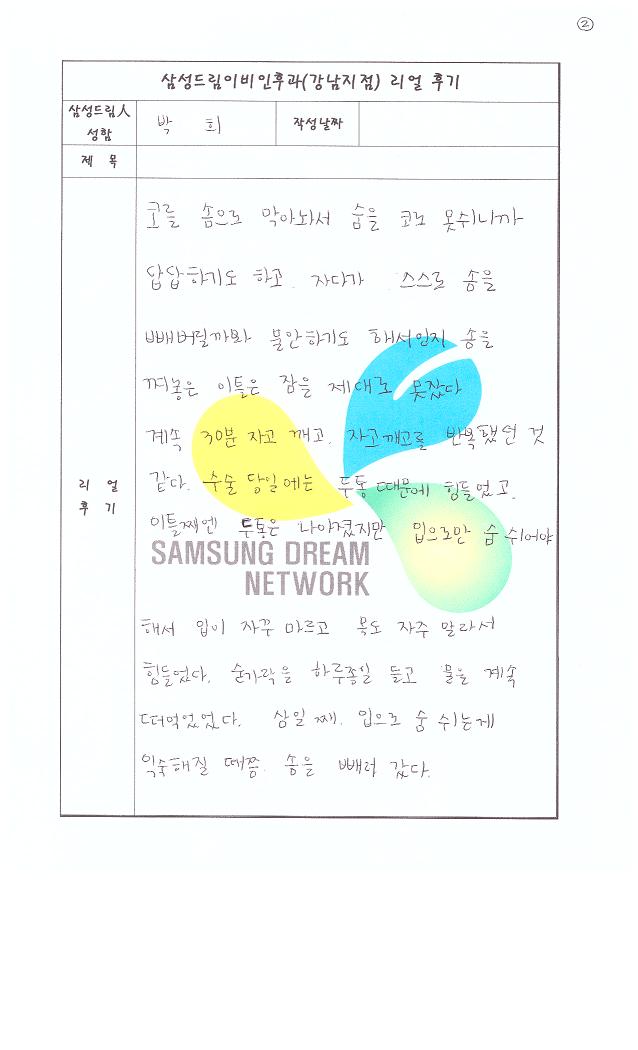 ②
삼성드림이비인후과(강남지점) 리얼 후기
삼성드림人 성함 박 희 작성날짜
제 목
리 얼 후 기
코를 솜으로 막아놔서 숨을 코로 못쉬니까
답답하기도 하고. 자다가 스스로 솜을
빼버릴까봐 불안하기도 해서인지 솜을
껴놓은 이틀은 잠을 제대로 못잤다
계속 30분 자고 깨고, 자고깨고를 반복했던 것
같다. 수술 당일에는 두통 때문에 힘들었고.
이틀째엔 두통은 나아졌지만 입으로만 숨 쉬어야
SAMSUNG DREAM
NETWORK
해서 입이 자꾸 마르고 목도 자주 말라서
힘들었다. 숟가락을 하루종일 들고 물을 계속
떠먹었었다. 삼일 째. 입으로 숨 쉬는게
익숙해질 때쯤. 솜을 빼러 갔다.